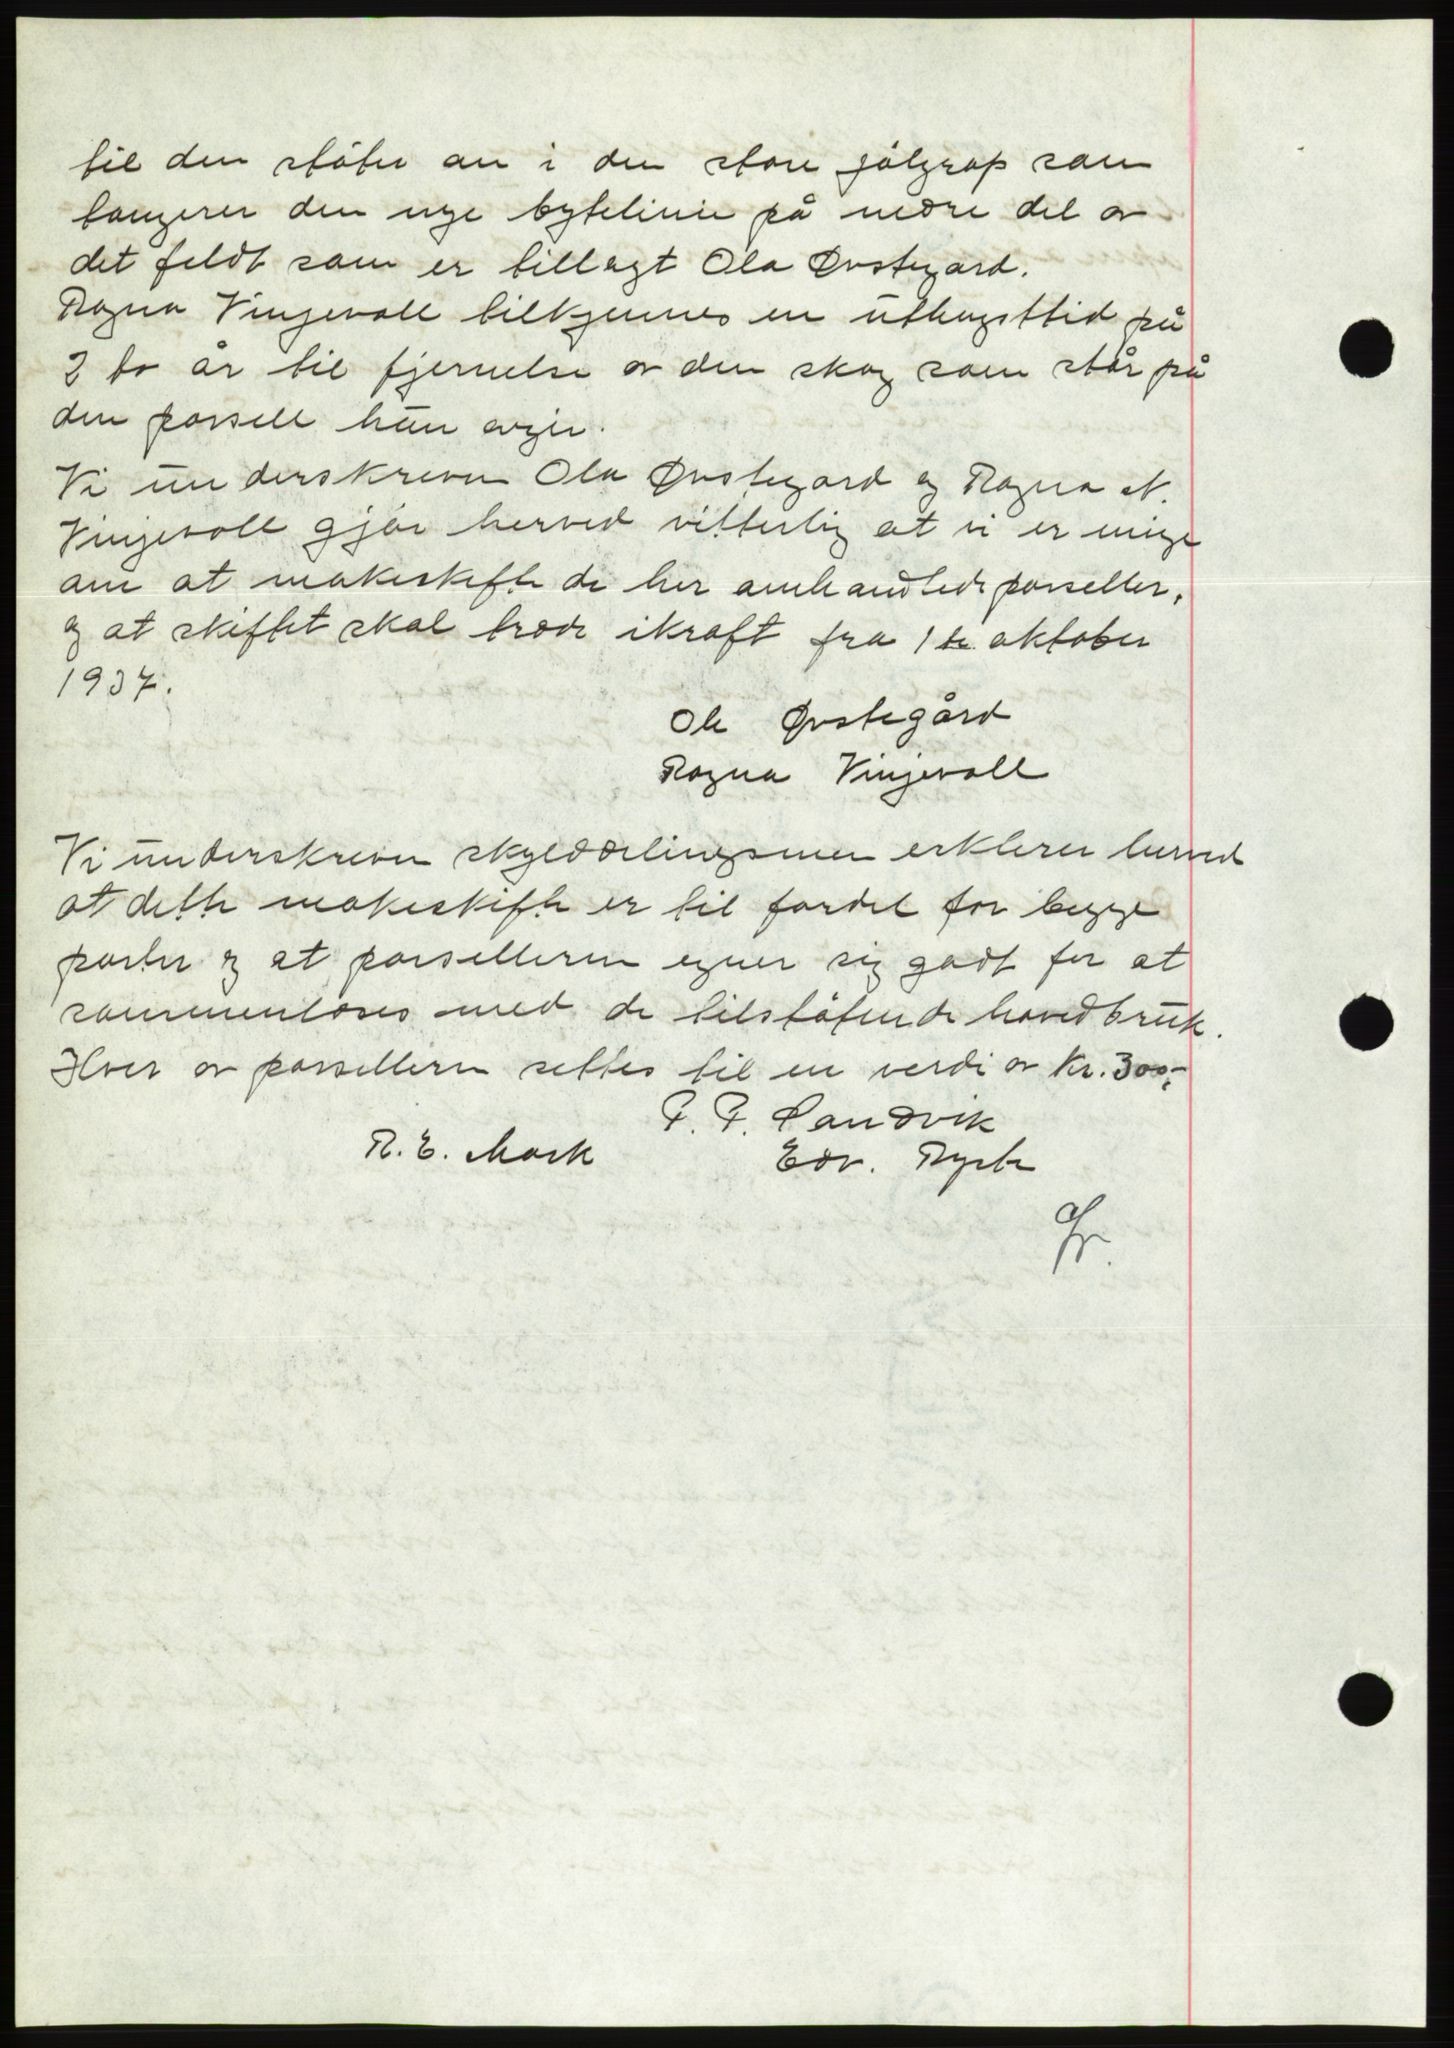 til den støter an i den store jølgrop som
tangerer den nye bytelinie på nedre del av
det feldt som er tillagt Ola Øvstegard.
Ragna Vinjevoll tilkjennes en uthugsttid på
2 to år til fjernelse av den skog som står på
den parsell hun avgir.
Vi underskrevne Ola Øvstegard og Ragna N.
Vinjevoll gjør herved vitterlig at vi er enige
om at makeskifte de her omhandlede parseller,
og at skiftet skal trede ikraft fra 1 ste oktober
1937.
Ola Øvstegård
Ragna Vinjevoll
Vi underskrevne skylddelingsmen erklerer herved
at dette makeskifte er til fordel for begge
parter og at parsellerne egner sig godt for at
sammenføies med de tilstøtende hovedbruk.
Hver av parsellerne settes til en verdi av kr. 300,-
P. P. Sandvik
R. E. Mork
Edv. Ryste